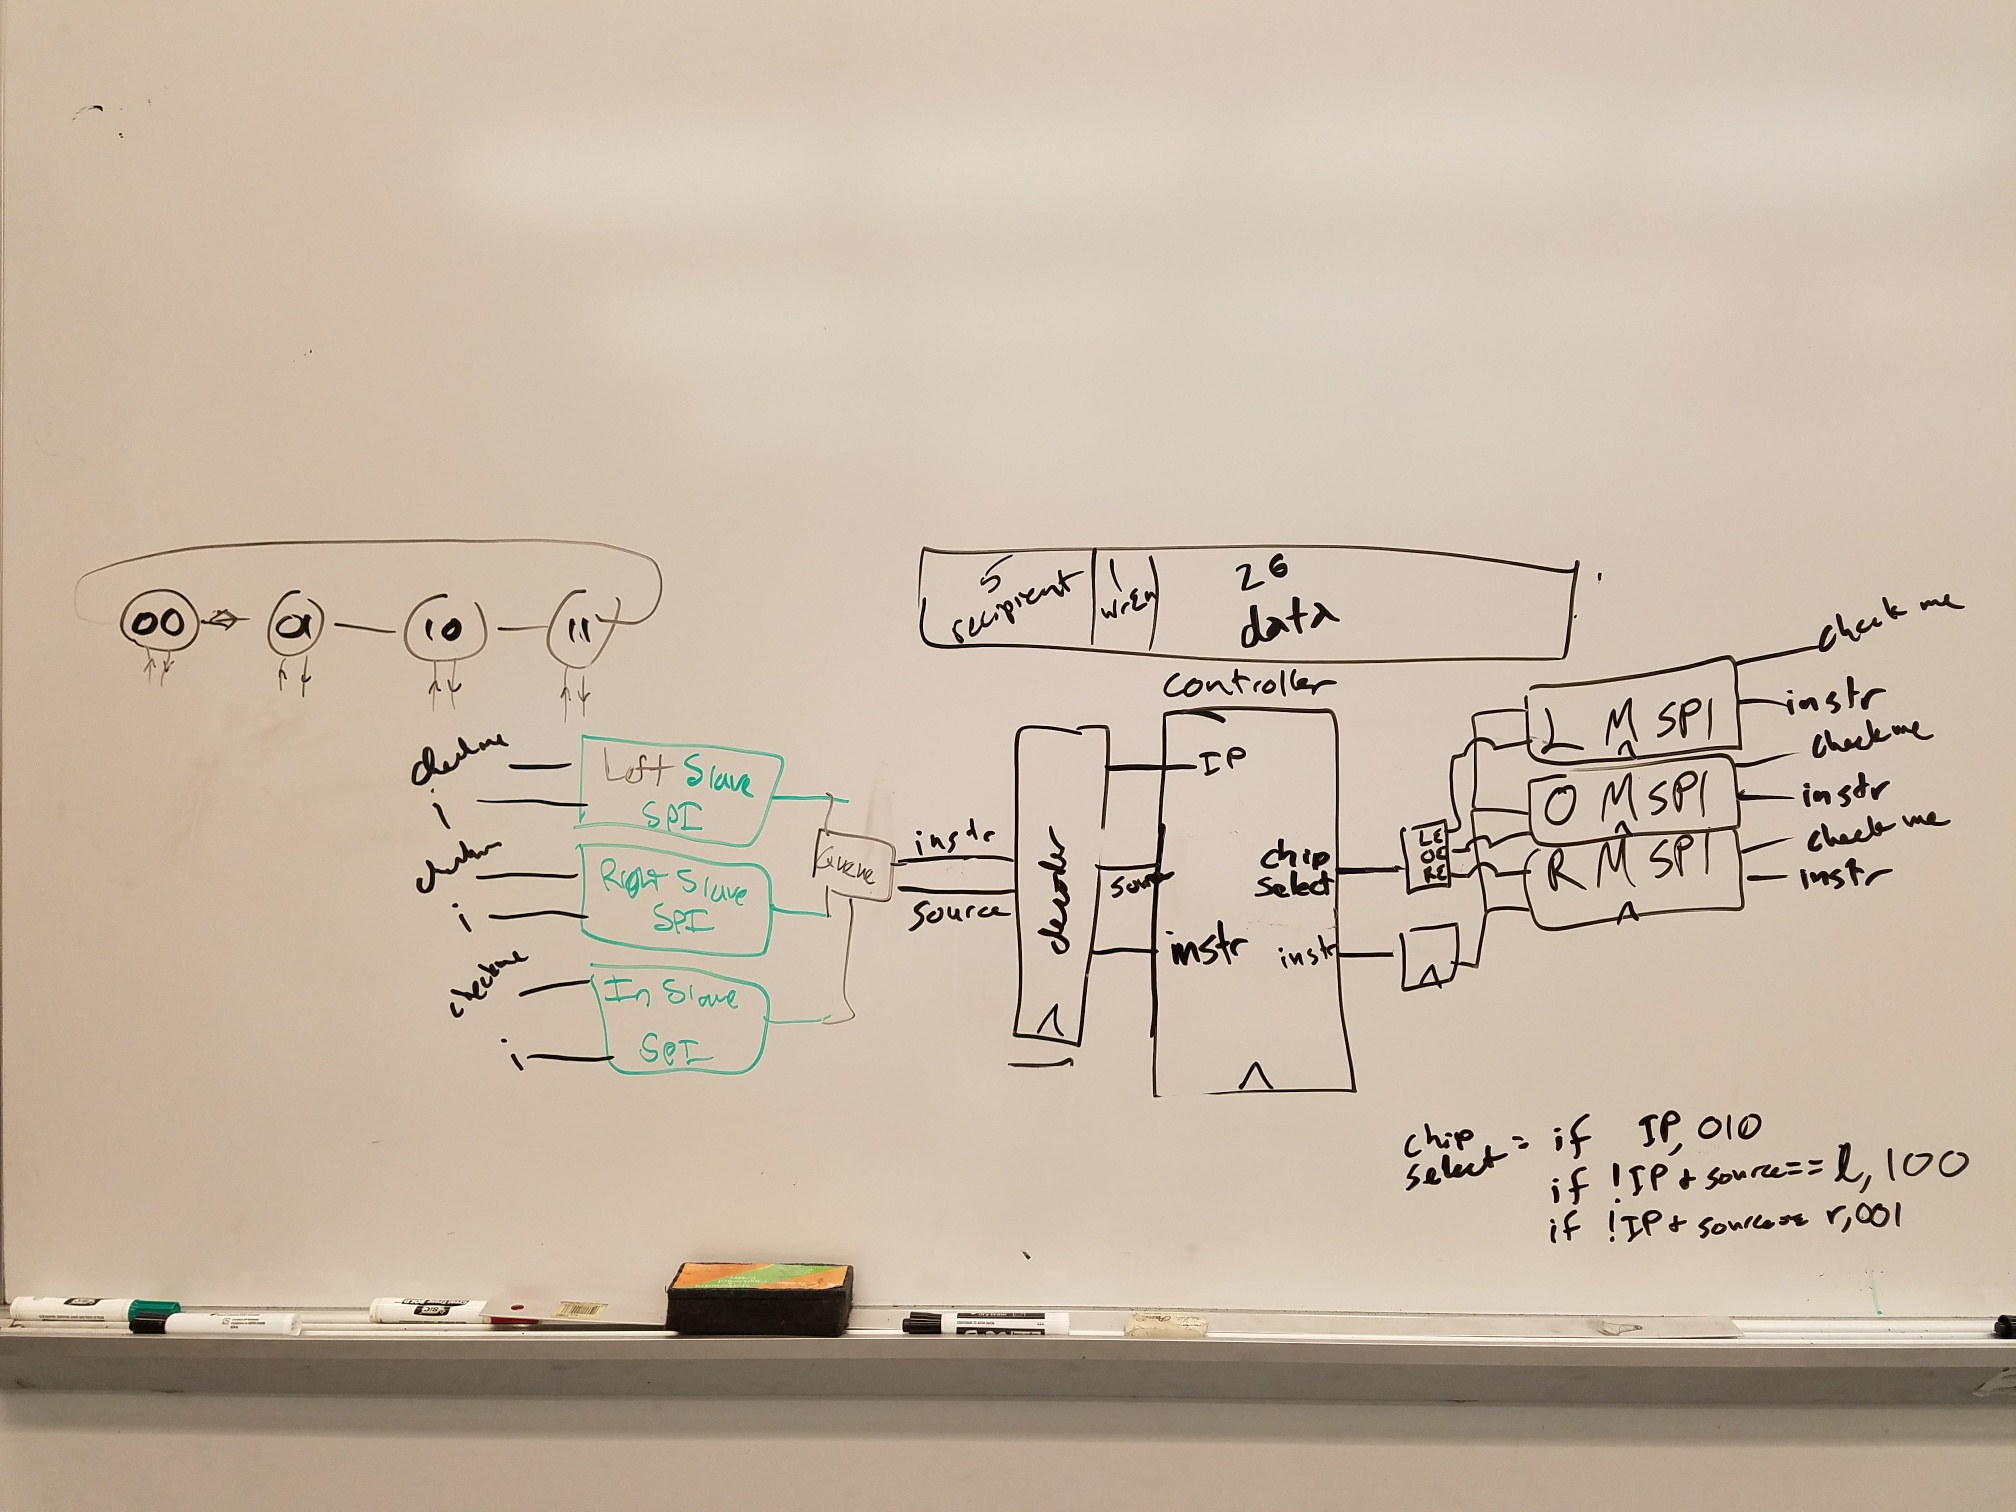 00 01 10 11
5
recipient
1
wrEn
26
data
controller
checkme
i
Left Slave
SPI
checkme
i
Right Slave
SPI
checkme
i
In Slave
SPI
Queue
instr
source
decoder
IP
source
instr
chip
select
instr
LE
OE
RE
L M SPI
O M SPI
R M SPI
check me
instr
check me
instr
check me
instr
chip
select = if IP, 010
if !IP + source == l, 100
if !IP + source == r, 001